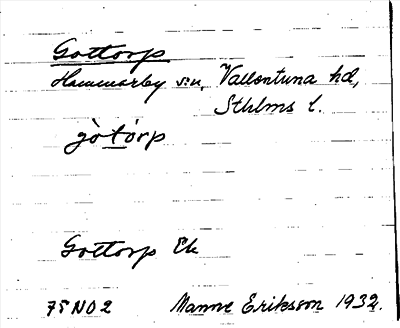 Gottorp
Hammarby s:n, Vallentuna hd,
Sthlms l.
gò̀tórp
Gottorp Ek
75 NO 2 Manne Eriksson 1932.